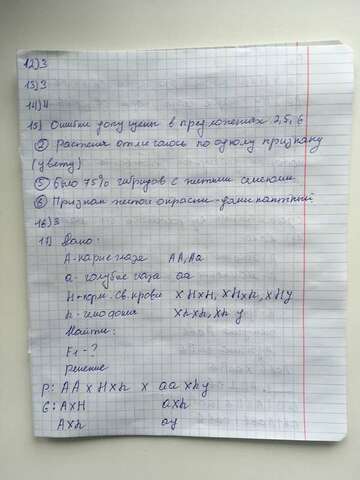 12) 3
13) 3
14) 4
15) Ошибки допущены в предложениях 2, 5, 6
② Растения отличалось по одному признаку
(цвету)
⑤ было 75% гибридов с желтыми семенами
⑥ Признак желтой окраски - доминантный
16) 3
17) Дано:
А - карие глаза AA, Aa
а - голубые глаза aa
H - норм. св. крови XHXH, XHXh, XHy
h - гемофилия XhXh, Xh y
Найти:
F1 - ?
Решение
P: AA XHXh x aa Xhy
G: AXH aXh
AXh ay